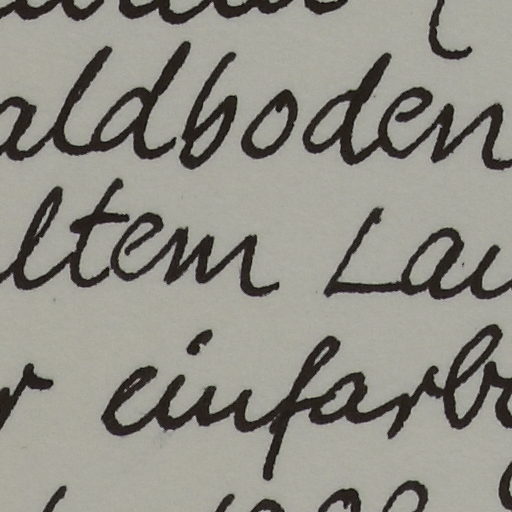 aldboden
ltem Lau
r einfarb